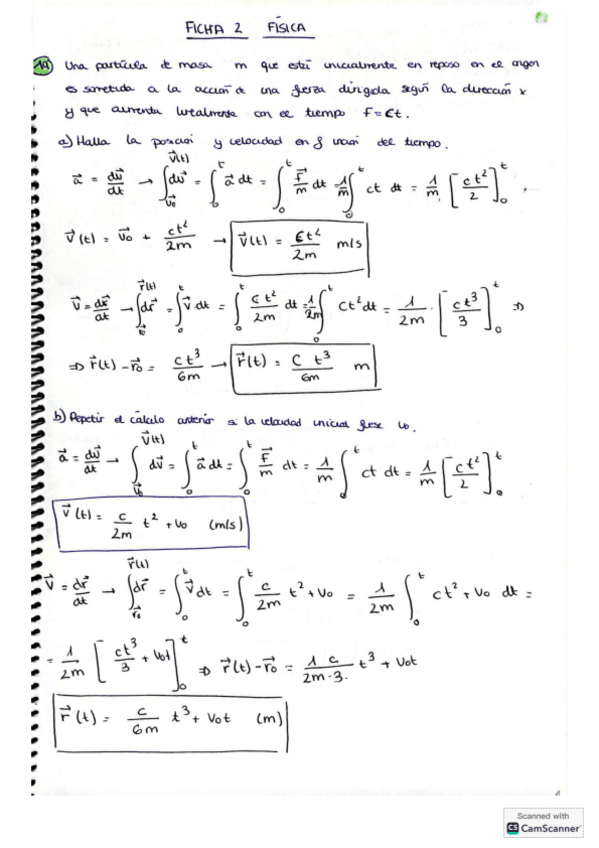 FICHA 2 FÍSICA
1º) Una partícula de masa m que está inicialmente en reposo en el origen
es sometida a la acción de una fuerza dirigida según la dirección x
y que aumenta linealmente con el tiempo F=Ct.
a) Halla la posición y velocidad en función del tiempo.
\vec{a} = \frac{d\vec{v}}{dt} → \int_{\vec{v}_0}^{\vec{v}(t)} d\vec{v} = \int_0^t \vec{a} dt = \int_0^t \frac{\vec{F}}{m} dt = \frac{1}{m} \int_0^t ct dt = \frac{1}{m} [\frac{ct^2}{2}]_0^t
\vec{v}(t) = \vec{v}_0 + \frac{ct^2}{2m} → \vec{v}(t) = \frac{ct^2}{2m} m/s
\vec{v} = \frac{d\vec{r}}{dt} → \int_{\vec{r}_0}^{\vec{r}(t)} d\vec{r} = \int_0^t \vec{v} dt = \int_0^t \frac{ct^2}{2m} dt = \frac{1}{2m} \int_0^t Ct^2 dt = \frac{1}{2m} · [\frac{ct^3}{3}]_0^t ⇒
⇒ \vec{r}(t) - \vec{r}_0 = \frac{ct^3}{6m} → \vec{r}(t) = \frac{C t^3}{6m} m
b) Repetir el cálculo anterior si la velocidad inicial fuese v_0.
\vec{a} = \frac{d\vec{v}}{dt} → \int_{\vec{v}_0}^{\vec{v}(t)} d\vec{v} = \int_0^t \vec{a} dt = \int_0^t \frac{\vec{F}}{m} dt = \frac{1}{m} \int_0^t ct dt = \frac{1}{m} [\frac{ct^2}{2}]_0^t
\vec{v}(t) = \frac{c}{2m} t^2 + v_0 (m/s)
\vec{v} = \frac{d\vec{r}}{dt} → \int_{\vec{r}_0}^{\vec{r}(t)} d\vec{r} = \int_0^t \vec{v} dt = \int_0^t \frac{c}{2m} t^2 + v_0 = \frac{1}{2m} \int_0^t ct^2 + v_0 dt =
= \frac{1}{2m} [\frac{ct^3}{3} + v_0t]_0^t ⇒ \vec{r}(t) - \vec{r}_0 = \frac{1 c}{2m·3} t^3 + v_0t
\vec{r}(t) = \frac{c}{6m} t^3 + v_0t (m)
Scanned with
CS CamScanner